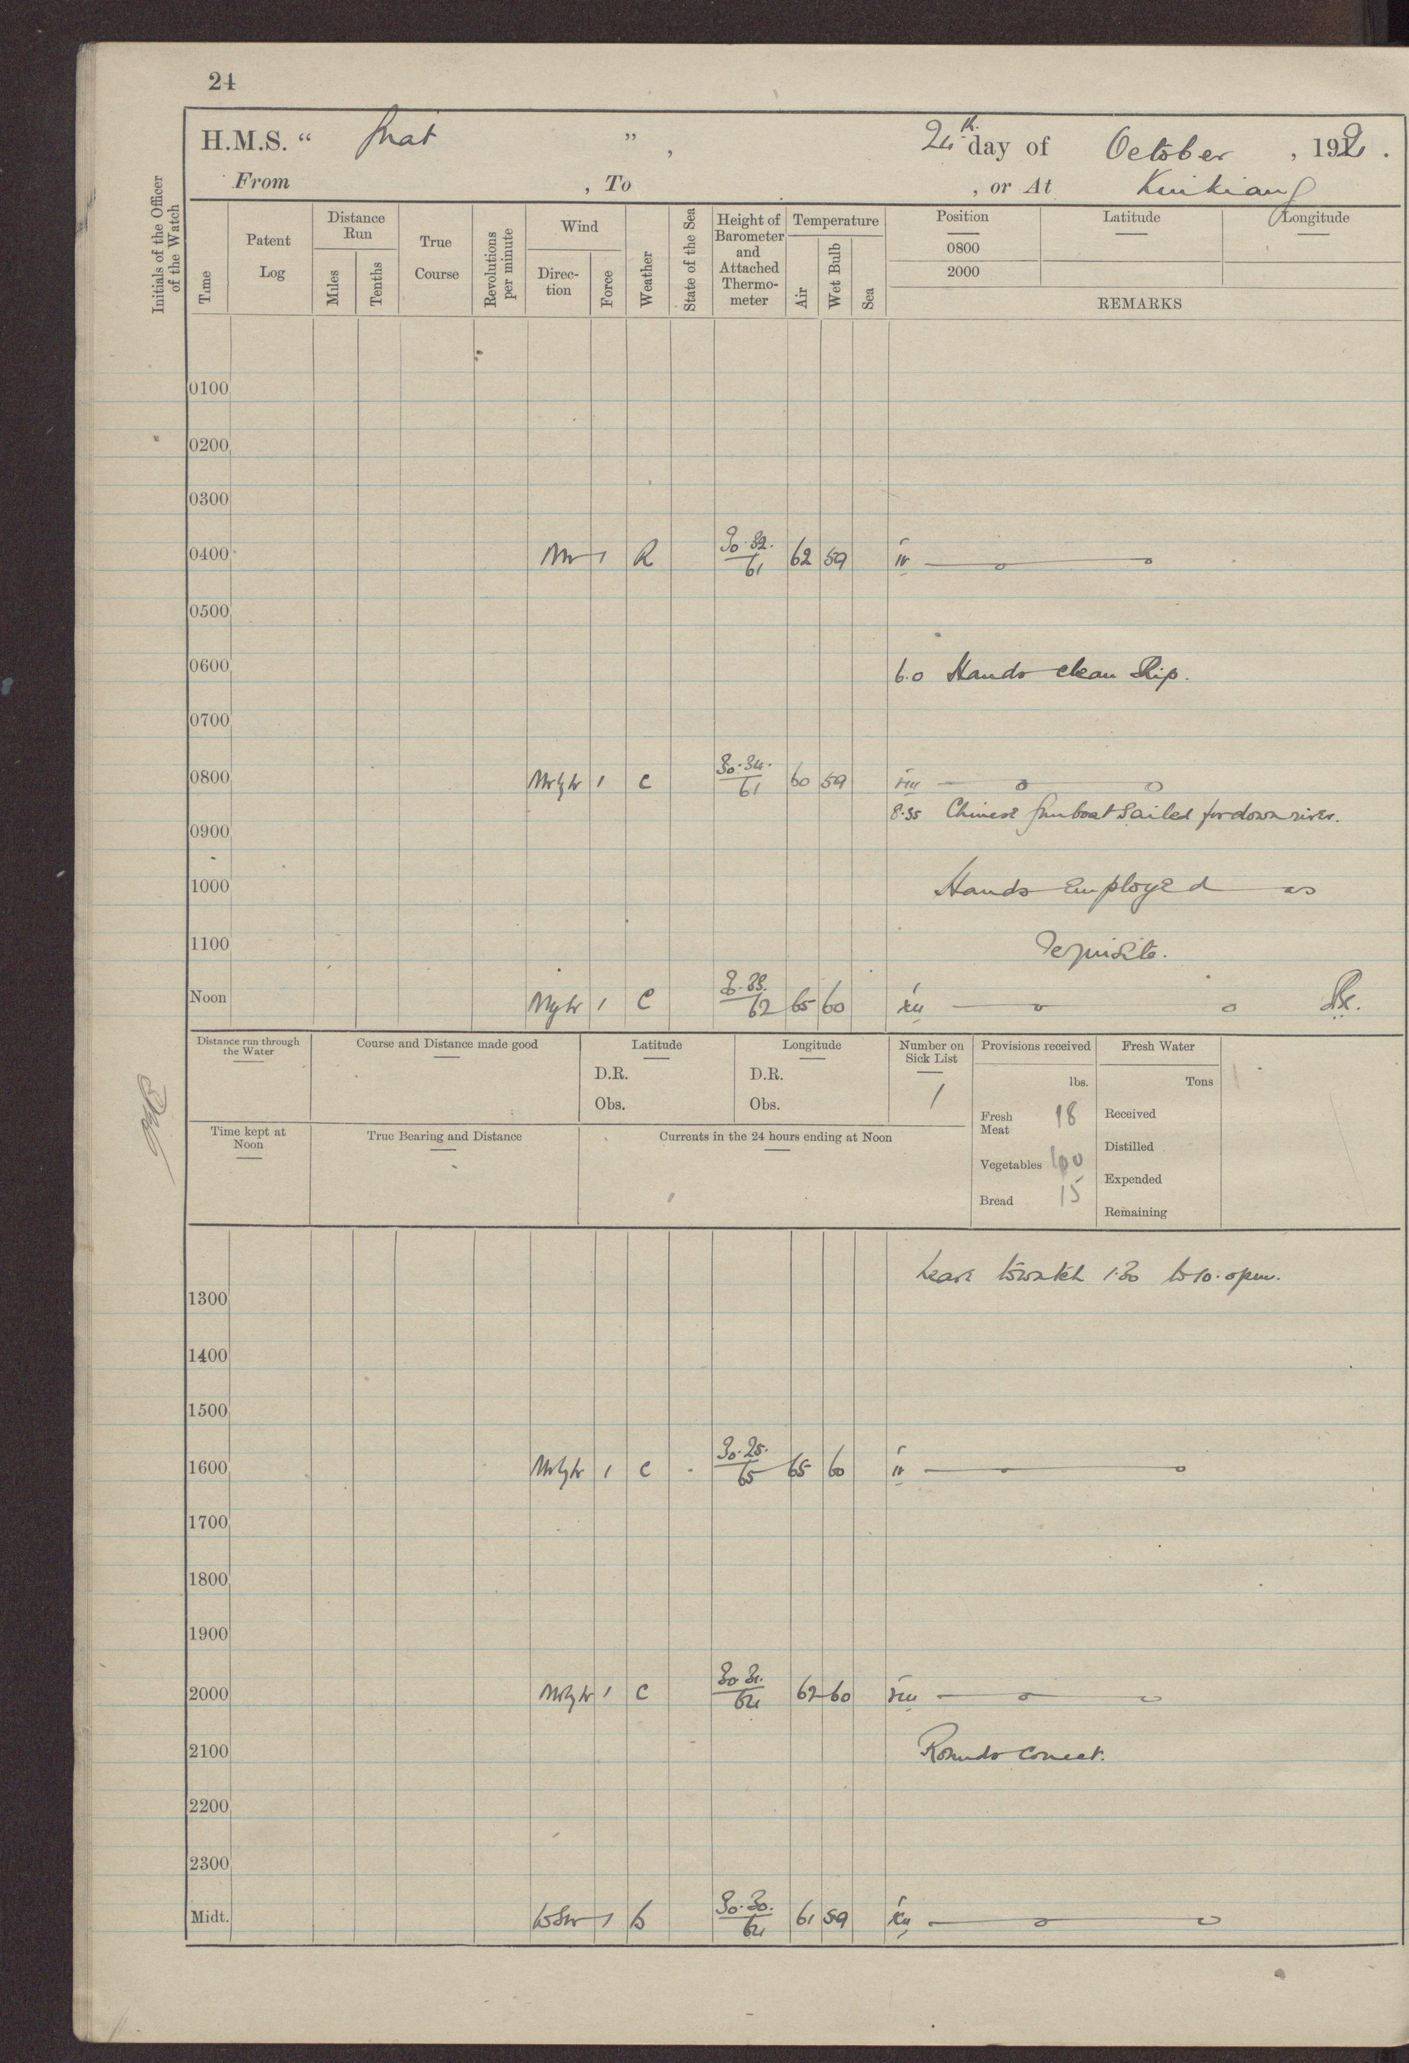 24
H.M.S. “ Gnat ”, 24th day of October, 192 .
From , To , or At Kiukiang
Initials of the Officer of the Watch
Time
Patent Log
Distance Run
Miles
Tenths
True Course
Revolutions per minute
Wind
Direction
Force
Weather
State of the Sea
Height of Barometer and Attached Thermometer
Temperature
Air
Wet Bulb
Sea
Position Latitude Longitude
0800
2000
REMARKS
0100
0200
0300
0400 NW 1 R 30.32. 61 62 59 iv
0500
0600 6.0 Hands clean Ship.
0700
0800 NWbyW 1 C 30.34. 61 60 59 viii
8.35 Chinese Gunboat Sailed for down river.
0900
1000 Hands Employed as
1100 requisite.
Noon 1 C 62 65 60 xii
Distance run through the Water
Course and Distance made good
Latitude
D.R.
Obs.
Longitude
D.R.
Obs.
Number on Sick List
1
Provisions received
lbs.
Fresh Meat 18
Vegetables 100
Bread 15
Fresh Water
Tons
Received
Distilled
Expended
Remaining
Time kept at Noon
True Bearing and Distance
Currents in the 24 hours ending at Noon
Leave to watch 1.30 to 10.0pm.
1300
1400
1500
1600 NWbyW 1 C 30.25. 65 65 60 iv
1700
1800
1900
2000 NWbyW 1 C 64 62 60 viii
2100 Rounds correct.
2200
2300
Midt. WSW 1 b 30.30. 64 61 59 xii